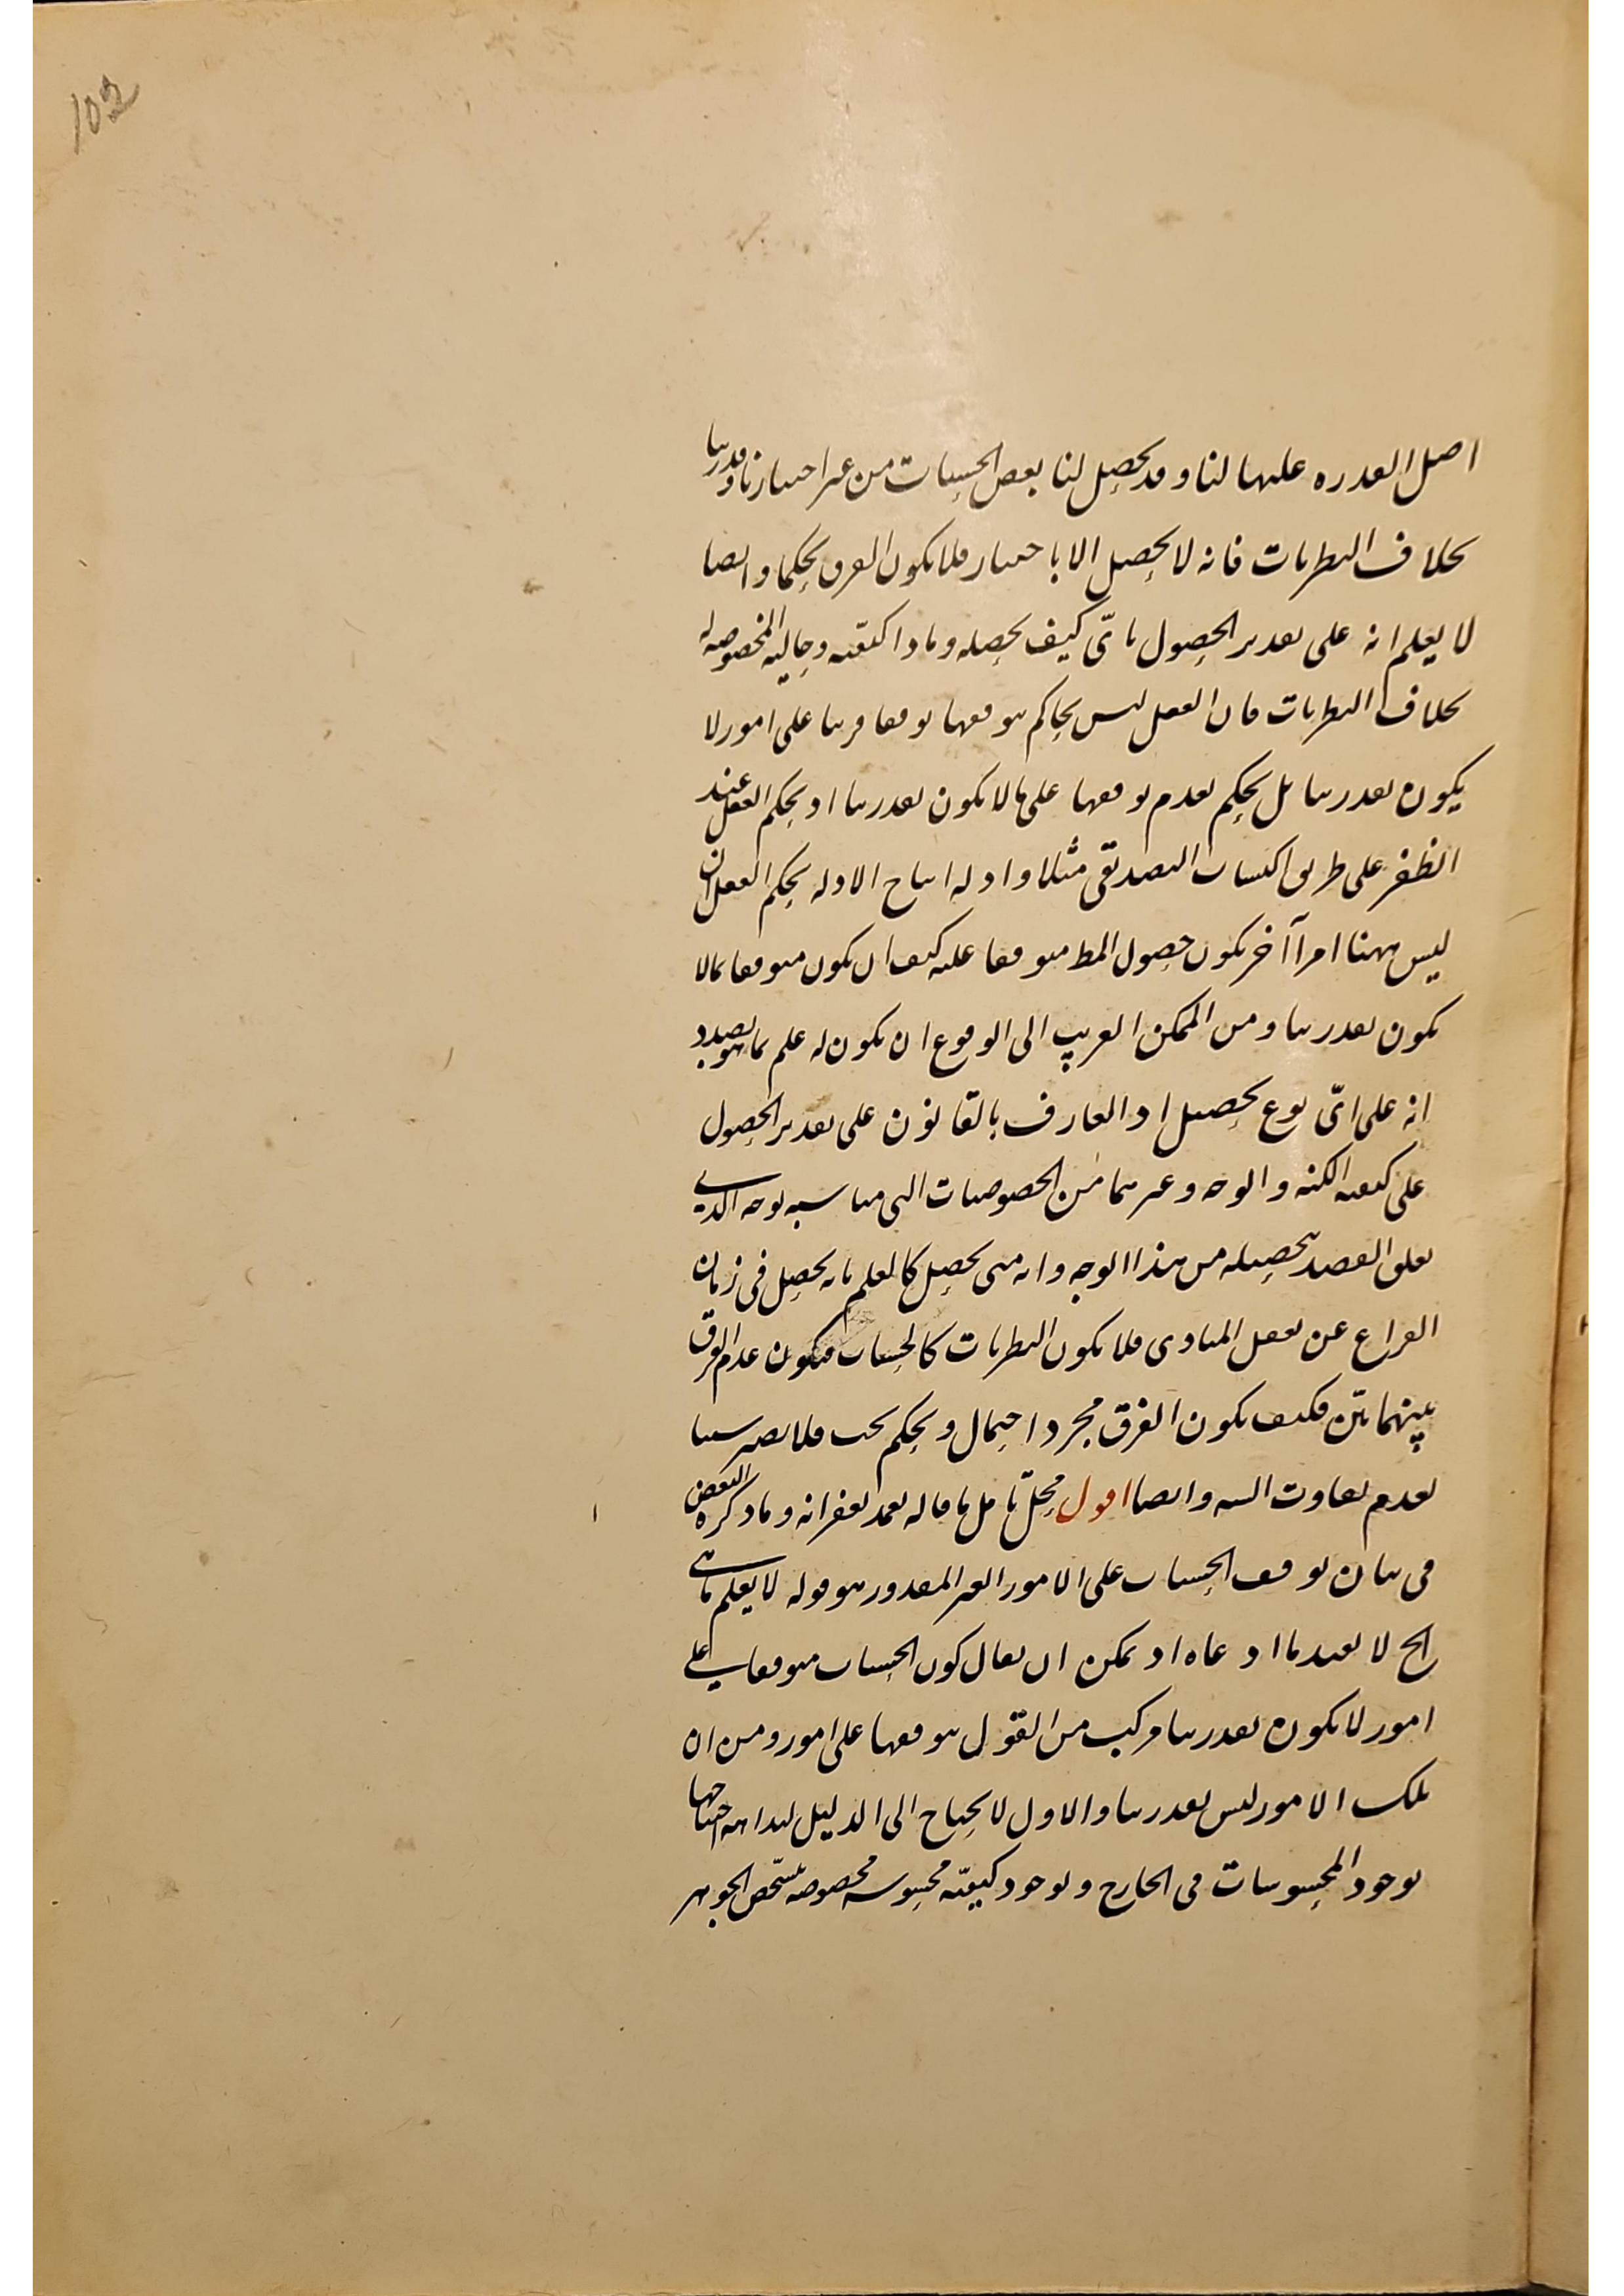 102
اصل القدرة عليها لنا وقد يحصل لنا بعض الحسيات من غير اختيارنا وقدرتنا
بخلاف النظريات فانه لا يحصل الا باختيار فلا يكون الفرق تحكما وايضا
لا يعلم انه على تقدير الحصول باىّ كيف يحصله وماذا كيفيته وحاليته المخصوصه
بخلاف النظريات فان العقل ليس بحاكم بتوقفها توقفا قريبا على امور لا
يكون بقدرتنا بل يحكم بعدم توقفها على ما لا يكون بقدرتنا اذ يحكم العقل عند
الظفر على طريق اكتساب التصديقى مثلا وادلة انتاج الادلة يحكم العقل ان
ليس ههنا امرا آخر يكون حصول المط متوقفا عليه كيف ان يكون متوقفا بما لا
يكون بقدرتنا ومن الممكن القريب الى الوقوع ان يكون له علم بما هو بصدد
انه على اىّ نوع يحصل اذ العارف بالقانون على تقدير الحصول
على كيفية الكنه والوجه وغيرهما من الخصوصيات التى مناسبة لوجه الذى
تعلق القصد بتحصيله من هذا الوجه وانه متى يحصل كالعلم بانه يحصل فى زمان
الفراغ عن تعقل المبادى فلا يكون النظريات كالحسيات فيكون عدم الفرق
بينهما بيّن فكيف يكون الفرق مجرد احتمال وتحكم بحت فلا يصير سببا
بعدم تفاوت النسبة وايضا اقول محلّ تامل ما قاله تغمد بغفرانه وما ذكره البعض
فى بيان توقف الحسيات على الامور الغير المقدور هو قوله لا يعلم ما هى
الخ لا يفيد ما ادعاه اذ يمكن ان يقال كون الحسيات متوقفا على
امور لا يكون بقدرتنا مركب من القول بتوقفها على امور ومن ان
تلك الامور ليس بقدرتنا والاول لا يحتاج الى الدليل لبداهة احتياجها
لوجود المحسوسات فى الخارج ولوجود كيفيّة محسوسة مخصوصة بتشخّص الجوهر